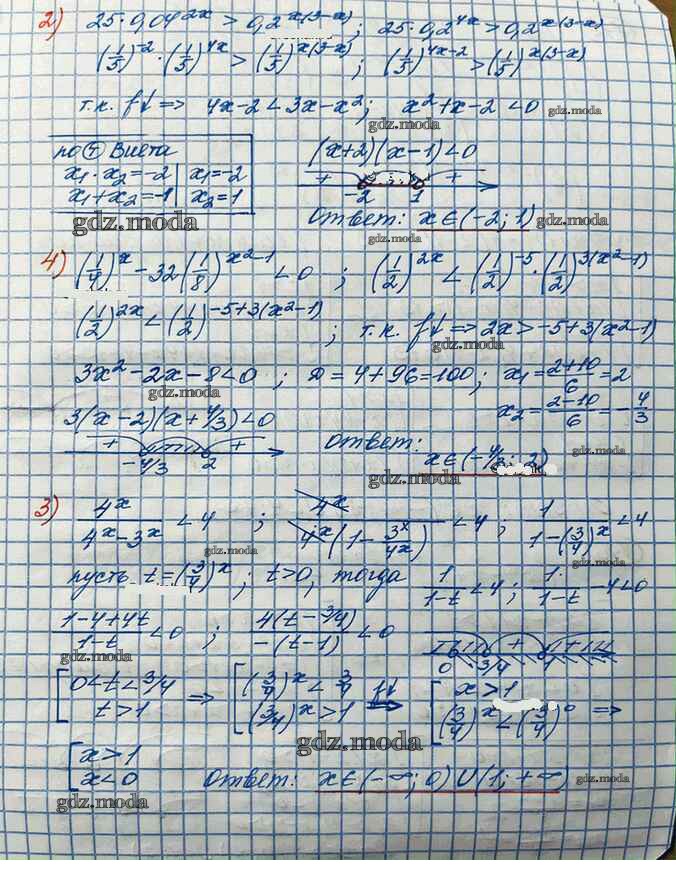 2) 25·0,04^2x > 0,2^x(3-x); 25·0,2^4x > 0,2^x(3-x)
(1/5)^-2 · (1/5)^4x > (1/5)^x(3-x); (1/5)^4x-2 > (1/5)^x(3-x)
т.к. f↓ => 4x-2 < 3x-x²; x²+x-2 < 0 gdz.moda
gdz.moda
по Т Виета (x+2)(x-1) < 0
x₁·x₂=-2 | x₁=-2 + +
x₁+x₂=-1 | x₂=1 -2 1
gdz.moda Ответ: x∈(-2; 1) gdz.moda
gdz.moda gdz.moda
4) (1/4)^x - 32(1/8)^x²-1 < 0; (1/2)^2x < (1/2)^-5 · (1/2)^3(x²-1)
gdz.moda
(1/2)^2x < (1/2)^-5+3(x²-1); т.к. f↓ => 2x > -5+3(x²-1)
gdz.moda
3x²-2x-8 < 0; D = 4+96=100; x₁ = 2+10/6 = 2
gdz.moda x₂ = 2-10/6 = -4/3
3(x-2)(x+4/3) < 0
+ + Ответ:
-4/3 2 x∈(-4/3; 2) gdz.moda
gdz.moda
3) 4^x/4^x-3^x < 4; 4^x/4^x(1-3^x/4^x) < 4; 1/1-(3/4)^x < 4
gdz.moda gdz.moda
пусть t=(3/4)^x; t>0, тогда 1/1-t < 4; 1/1-t - 4 < 0
gdz.moda
1-4+4t/1-t < 0; 4(t-3/4)/-(t-1) < 0 +
gdz.moda 0 3/4 1
[0<t<3/4 => [(3/4)^x < 3/4 f↓ => [x>1
t>1 (3/4)^x > 1 (3/4)^x < (3/4)^0 =>
gdz.moda gdz.moda
[x>1
x<0 Ответ: x∈(-∞; 0)∪(1; +∞) gdz.moda
gdz.moda